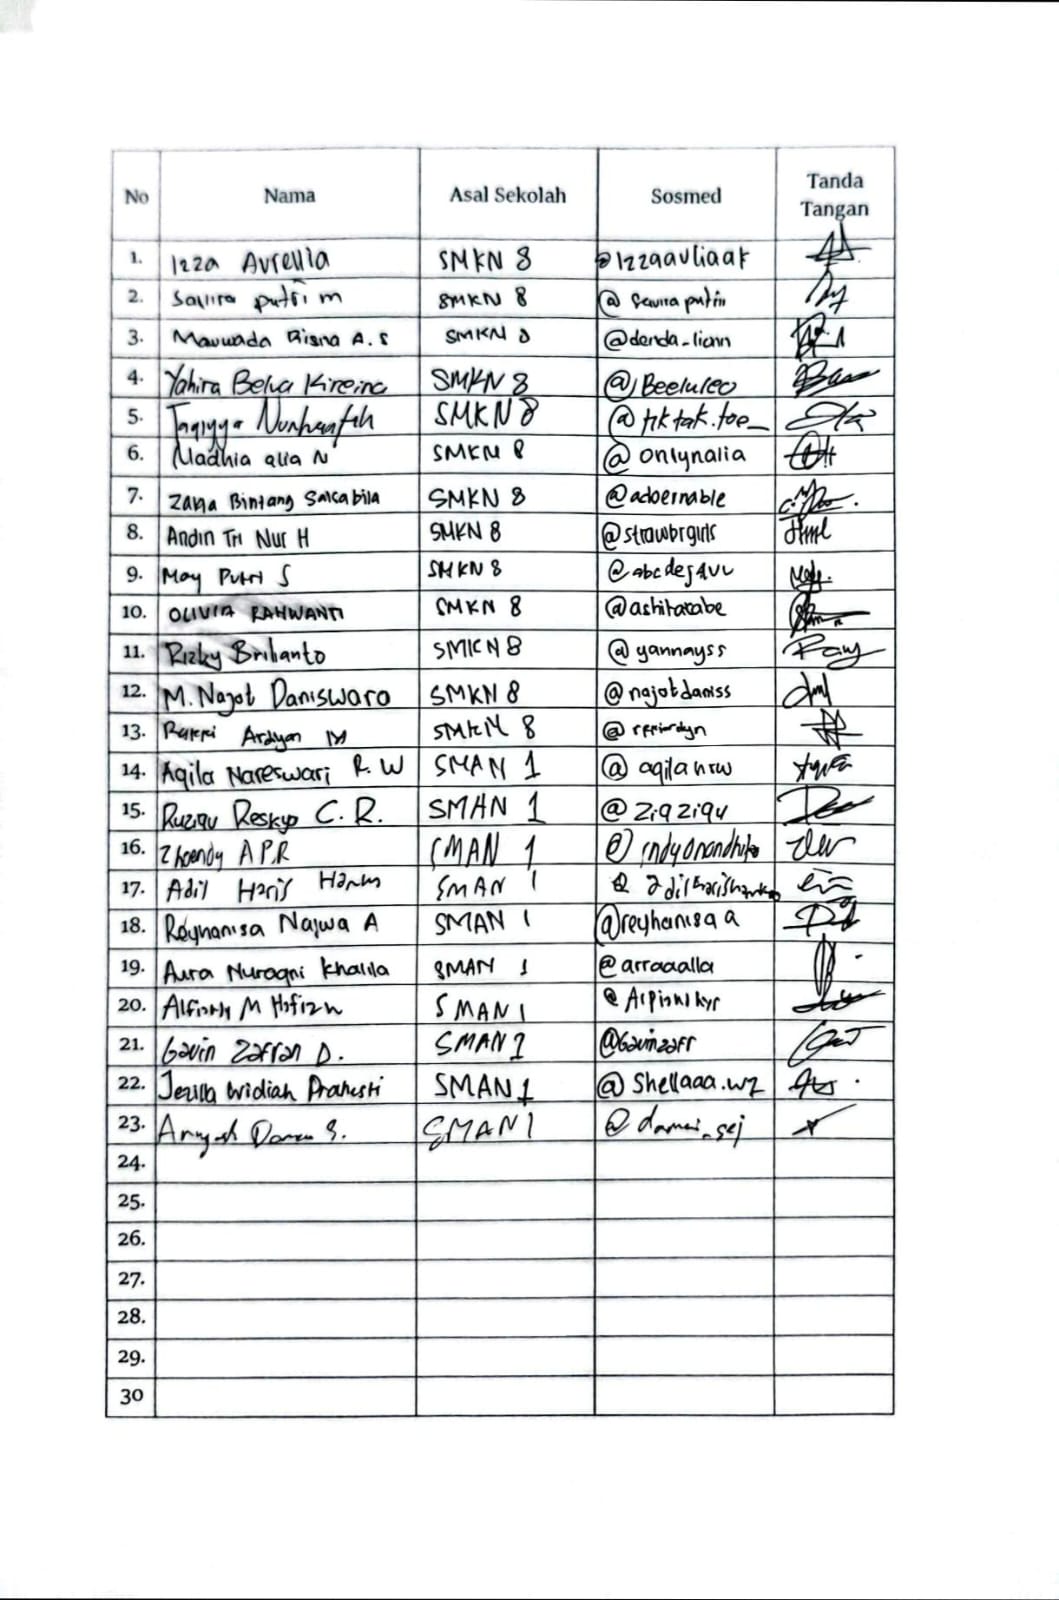 No Nama Asal Sekolah Sosmed Tanda Tangan
1. Izza Avrellia SMKN 8 @Izzaauliaak
2. Savira putri m SMKN 8 @savira putrii
3. Mauwada Risna A.S SMKN 8 @denda_liann
4. Yahira Belva Kireina SMKN 8 @Beeluleo
5. SMKN 8 @tiktak.toe_
6. Nadhia alia N SMKN 8 @onlynalia
7. Zakia Bintang Salcabila SMKN 8 @adoernable
8. Andin Tri Nur H SMKN 8 @strawbrgirls
9. May Putri S SMKN 8
10. OLIVIA RAHWANTI SMKN 8 @ashitatabe
11. Rizky Brilianto SMKN 8 @yannayss
12. M. Najot Daniswaro SMKN 8 @najotdaniss
13. Ardyan M SMKN 8
14. Aqila Nareswari R.W SMAN 1 @aqilanrw
15. Ruziqu Reskyo C.R. SMAN 1 @ziqziqu
16. Zhoendy A P.R SMAN 1
17. Adil Haris Hanks SMAN 1
18. Reyhanisa Najwa A SMAN 1 @reyhanisaa
19. Aura Nuraqni Khalila SMAN 1 @arraaalla
20. SMAN 1
21. Gavin Zafran D. SMAN 1 @Gavinzafr
22. Jezilla Widiah Prahesti SMAN 1 @Shellaaa.wz
23. SMAN 1
24.
25.
26.
27.
28.
29.
30